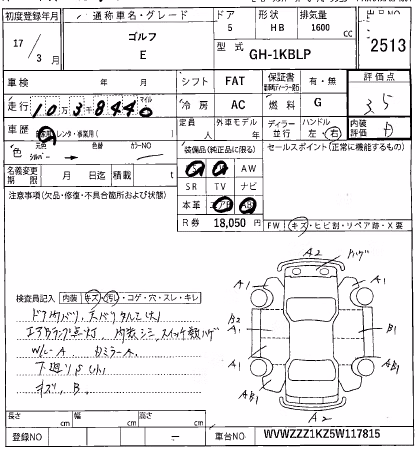 初度登録年月
通称車名・グレード
ドア
形状
排気量
出品NO
17/3月
ゴルフ
E
5
HB
1600
CC
型式
GH-1KBLP
2513
車検
年
月
シフト
FAT
保証書
有・無
評価点
走行
10万38440
マイル
冷房
AC
燃料
G
3.5
車歴
レンタ・事業用(
)
定員
人
外車モデル
年
ディーラー
並行
ハンドル
左・右
内装
評価
D
色
元色
シルバー
色替
カラーNO
装備品(純正品に限る)
セールスポイント(正常に機能するもの)
名義変更
期限
月
日迄
積載
t
AW
SR
TV
ナビ
注意事項(欠品・修復・不具合箇所および状態)
本革
エアB
R券
18,050
円
FW
キズ・ヒビ割・リペア跡・X要
検査員記入
内装
キズ・汚・コゲ・穴・スレ・キレ
ドア内バリ、天バリタルミ(大)
エアBランプ点灯、内装シミ、スイッチ類ハゲ
W/C-A
カミラーA
下廻りS(小)
キズ、B
A2
A1
A1
B2
A1
B1
A1
A1
AB1
AB1
A2
長さ
cm
幅
cm
高さ
cm
登録NO
ー
車台NO
WVWZZZ1KZ5W117815